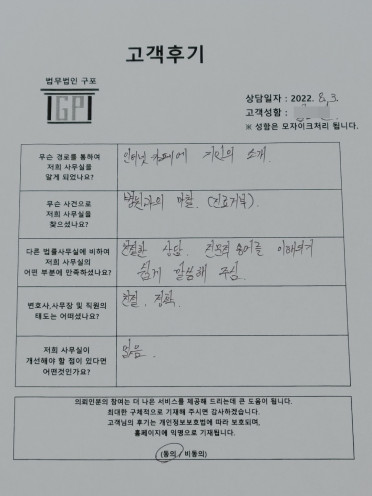 고객후기
법무법인 구포
GP
상담일자 : 2022. 8. 3.
고객성함 :
※ 성함은 모자이크처리 됩니다.
무슨 경로를 통하여
저희 사무실을
알게 되었나요?
인터넷 카페에 지인의 소개.
무슨 사건으로
저희 사무실을
찾으셨나요?
병원과의 마찰. (진료거부).
다른 법률사무실에 비하여
저희 사무실의
어떤 부분에 만족하셨나요?
친절한 상담. 전문적 용어를 이해하기
쉽게 말씀해 주심.
변호사,사무장 및 직원의
태도는 어떠셨나요?
친절, 정확
저희 사무실이
개선해야 할 점이 있다면
어떤것인가요?
없음.
의뢰인분의 참여는 더 나은 서비스를 제공해 드리는데 큰 도움이 됩니다.
최대한 구체적으로 기재해 주시면 감사하겠습니다.
고객님의 후기는 개인정보보호법에 따라 보호되며,
홈페이지에 익명으로 기재됩니다.
(동의 / 비동의)